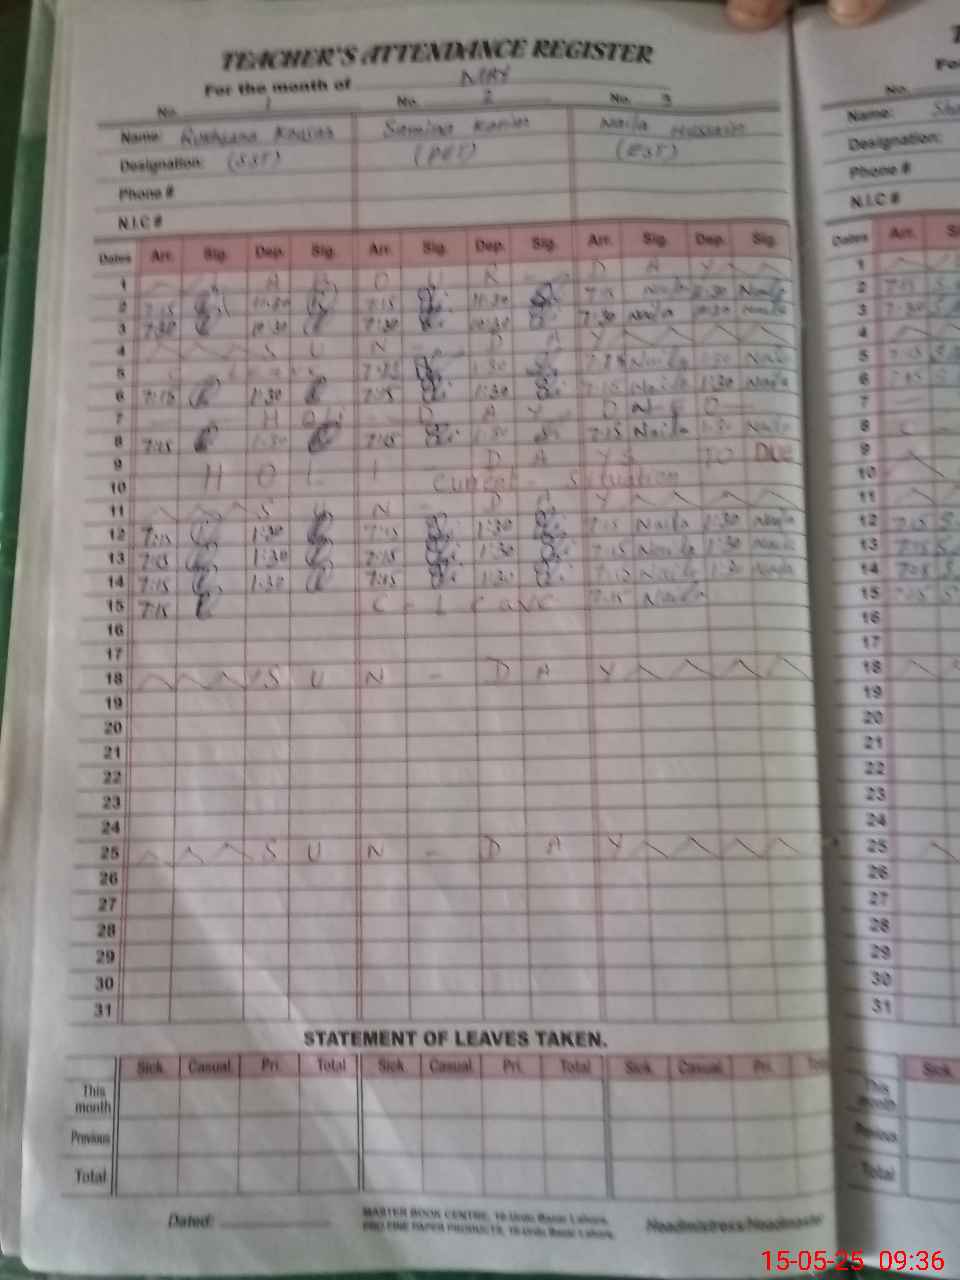 TEACHER'S ATTENDANCE REGISTER
For the month of MAY
No. 1 No. 2 No. 3
Name: Kousar Samina Naila Hussain
Designation: (SST) (PET) (EST)
Phone #
N.I.C #
Dates Arr. Sig. Dep. Sig. Arr. Sig. Dep. Sig. Arr. Sig. Dep. Sig.
1 L A B O U R D A Y
2 7:15 11:30 7:15 11:30 7:15 Naila 11:30 Naila
3 7:30 10:30 7:30 10:30 7:30 Naila 10:30 Naila
4 S U N - D A Y
5 7:15 1:30 7:15 Naila 1:30 Naila
6 7:15 1:30 7:15 1:30 7:15 Naila 1:30 Naila
7 H O L I - D A Y
8 7:15 1:30 7:15 1:30 7:15 Naila 1:30 Naila
9 H O L I - D A YS TO DUE
10 Current - Situation
11 S U N - D A Y
12 7:15 1:30 7:15 1:30 7:15 Naila 1:30 Naila
13 7:15 1:30 7:15 1:30 7:15 Naila 1:30 Naila
14 7:15 1:30 7:15 1:30 7:15 Naila 1:30 Naila
15 7:15 C - Leave 7:15 Naila
16
17
18 S U N - D A Y
19
20
21
22
23
24
25 S U N - D A Y
26
27
28
29
30
31
STATEMENT OF LEAVES TAKEN.
Sick Casual Pri. Total Sick Casual Pri. Total Sick Casual Pri.
This month
Previous
Total
Dated:
MASTER BOOK CENTRE, 10-Urdu Bazar Lahore.
PRO FINE PAPER PRODUCTS, 10-Urdu Bazar Lahore.
Headmistress/Headmaster
No.
Name:
Designation:
Phone #
N.I.C #
Dates Arr.
1
2 7:15
3 7:30
4
5 7:15
6 7:15
7
8
9
10
11
12 7:15
13 7:15
14 7:15
15 7:15
16
17
18
19
20
21
22
23
24
25
26
27
28
29
30
31
Sick
This month
Previous
Total
15-05-25 09:36